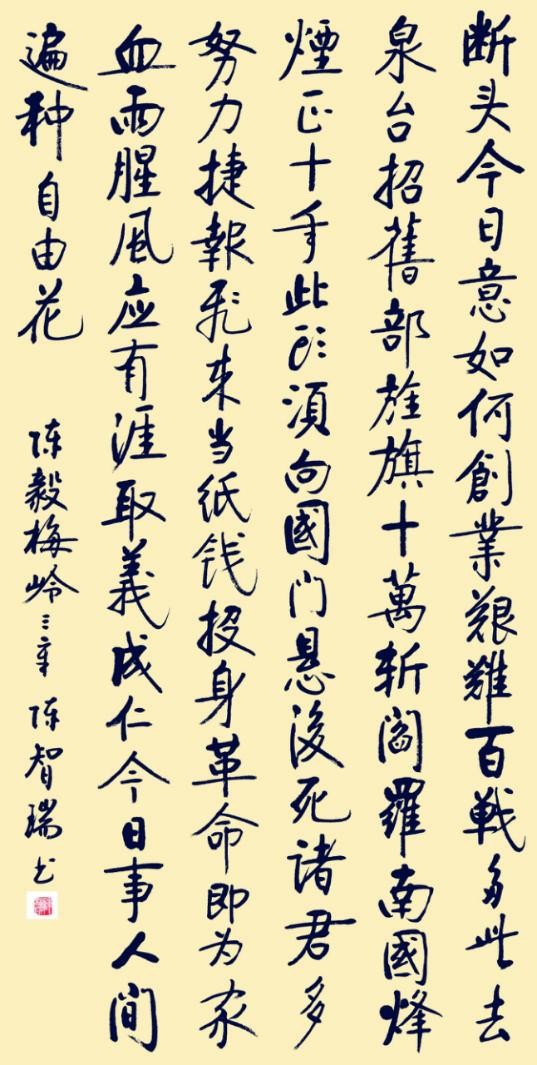 断头今日意如何創業艱難百戰多此去
泉台招舊部旌旗十萬斬閻羅南國烽
煙正十年此頭須向國门悬後死诸君多
努力捷報飛来当纸钱投身革命即为家
血雨腥風应有涯取義成仁今日事人間
遍种自由花
陈毅梅岭三章 陈智瑞书